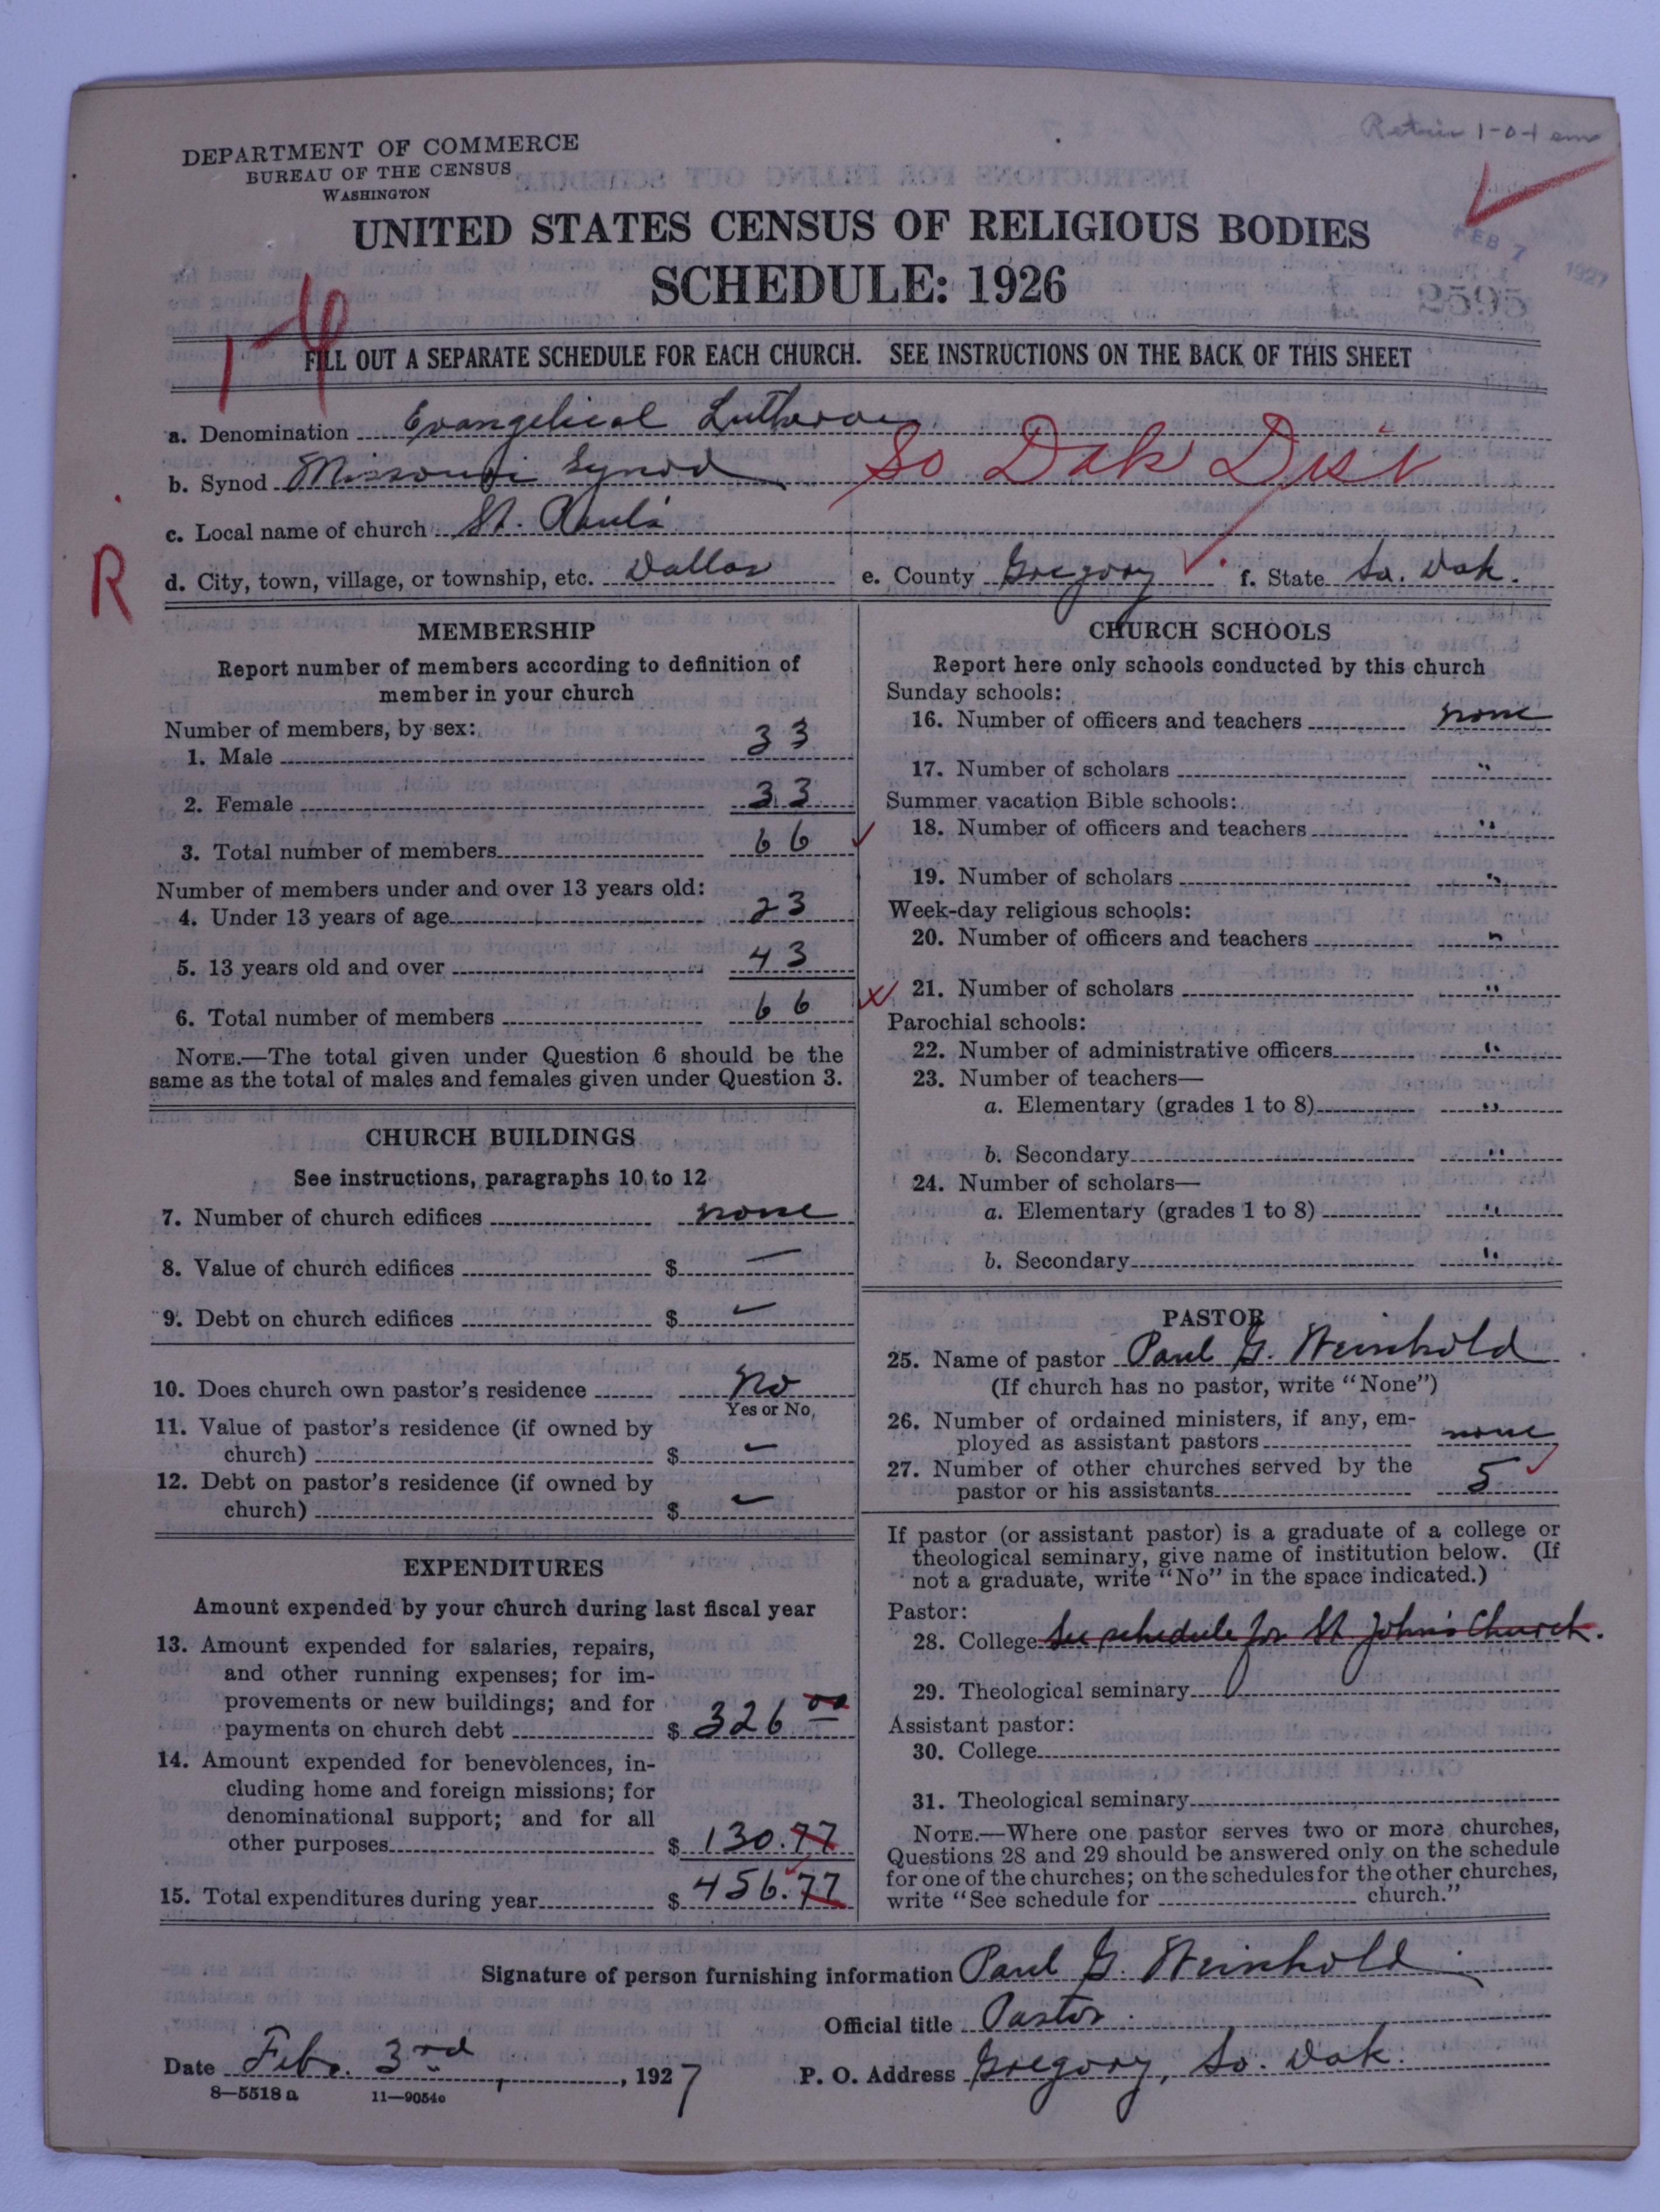 Retain 1-0-1 em
DEPARTMENT OF COMMERCE
BUREAU OF THE CENSUS
WASHINGTON
UNITED STATES CENSUS OF RELIGIOUS BODIES
SCHEDULE: 1926
FEB 7 1927
2595
FILL OUT A SEPARATE SCHEDULE FOR EACH CHURCH. SEE INSTRUCTIONS ON THE BACK OF THIS SHEET
a. Denomination Evangelical Lutheran
b. Synod Missouri Synod So Dak Dist
c. Local name of church St. Paul's
R
d. City, town, village, or township, etc. Dallas e. County Gregory f. State So. Dak.
MEMBERSHIP
Report number of members according to definition of
member in your church
Number of members, by sex:
1. Male 33
2. Female 33
3. Total number of members 66
Number of members under and over 13 years old:
4. Under 13 years of age 23
5. 13 years old and over 43
6. Total number of members 66
NOTE.—The total given under Question 6 should be the
same as the total of males and females given under Question 3.
CHURCH BUILDINGS
See instructions, paragraphs 10 to 12
7. Number of church edifices none
8. Value of church edifices $ —
9. Debt on church edifices $ —
10. Does church own pastor's residence No
Yes or No
11. Value of pastor's residence (if owned by
church) $ —
12. Debt on pastor's residence (if owned by
church) $ —
EXPENDITURES
Amount expended by your church during last fiscal year
13. Amount expended for salaries, repairs,
and other running expenses; for im-
provements or new buildings; and for
payments on church debt $ 326 00
14. Amount expended for benevolences, in-
cluding home and foreign missions; for
denominational support; and for all
other purposes $ 130.77
15. Total expenditures during year $ 456.77
CHURCH SCHOOLS
Report here only schools conducted by this church
Sunday schools:
16. Number of officers and teachers none
17. Number of scholars "
Summer vacation Bible schools:
18. Number of officers and teachers "
19. Number of scholars "
Week-day religious schools:
20. Number of officers and teachers "
21. Number of scholars "
Parochial schools:
22. Number of administrative officers "
23. Number of teachers—
a. Elementary (grades 1 to 8) "
b. Secondary "
24. Number of scholars—
a. Elementary (grades 1 to 8) "
b. Secondary "
PASTOR
25. Name of pastor Paul G. Weinhold
(If church has no pastor, write "None")
26. Number of ordained ministers, if any, em-
ployed as assistant pastors none
27. Number of other churches served by the
pastor or his assistants 5
If pastor (or assistant pastor) is a graduate of a college or
theological seminary, give name of institution below. (If
not a graduate, write "No" in the space indicated.)
Pastor:
28. College See schedule for St John's Church.
29. Theological seminary
Assistant pastor:
30. College
31. Theological seminary
NOTE.—Where one pastor serves two or more churches,
Questions 28 and 29 should be answered only on the schedule
for one of the churches; on the schedules for the other churches,
write "See schedule for church."
Signature of person furnishing information Paul G. Weinhold
Official title Pastor
Date Feb. 3rd, 1927 P. O. Address Gregory, So. Dak.
8—5518 a 11—9054